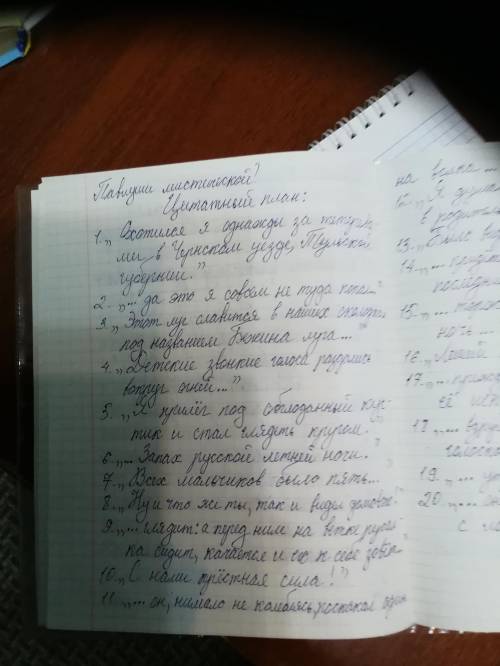 Павлуши мистической?
Цитатный план:
1. „Охотился я однажды за тетерева
ми в Чернском уезде, Тульской
губернии."
2. „... да это я совсем не туда попал."
3. „Этот луг славится в наших околотках
под названием Бежина луга..."
4. „Детские звонкие голоса раздались
вокруг огней..."
5. „Я прилёг под обглоданный кус-
тик и стал глядеть кругом."
6. „... Запах русской летней ночи."
7. „Всех мальчиков было пять...
8. „Ну и что же ты, так и видел домового?
9. „... глядит: а перед ним на ветке русал
ка сидит, качается и его к себе зовёт"
10. „С нами крестная сила!"
11. „... он, нимало не колеблясь, поскакал один
на волка...
12. „Я
в родител
13. „Было
14. „...
последни
15. „...
ночь...
16. „Леший
17. „...
её
18. „...
голоско
19. „...
20. „...
с